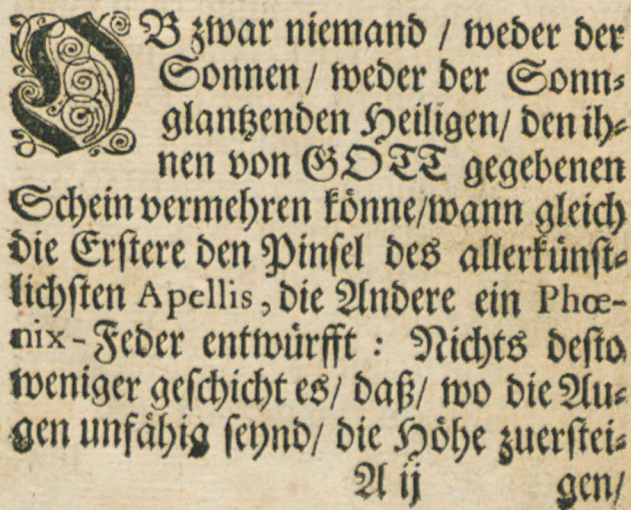 OB zwar niemand / weder der
Sonnen / weder der Sonn⸗
glantzenden Heiligen / den ih⸗
nen von GOTT gegebenen
Schein vermehren könne / wann gleich
die Erstere den Pinsel des allerkünst⸗
lichsten Apellis, die Andere ein Phœ-
nix-Feder entwürfft : Nichts desto
weniger geschicht es / daß / wo die Au⸗
gen unfähig seynd / die Höhe zuerstei⸗
A ij gen /